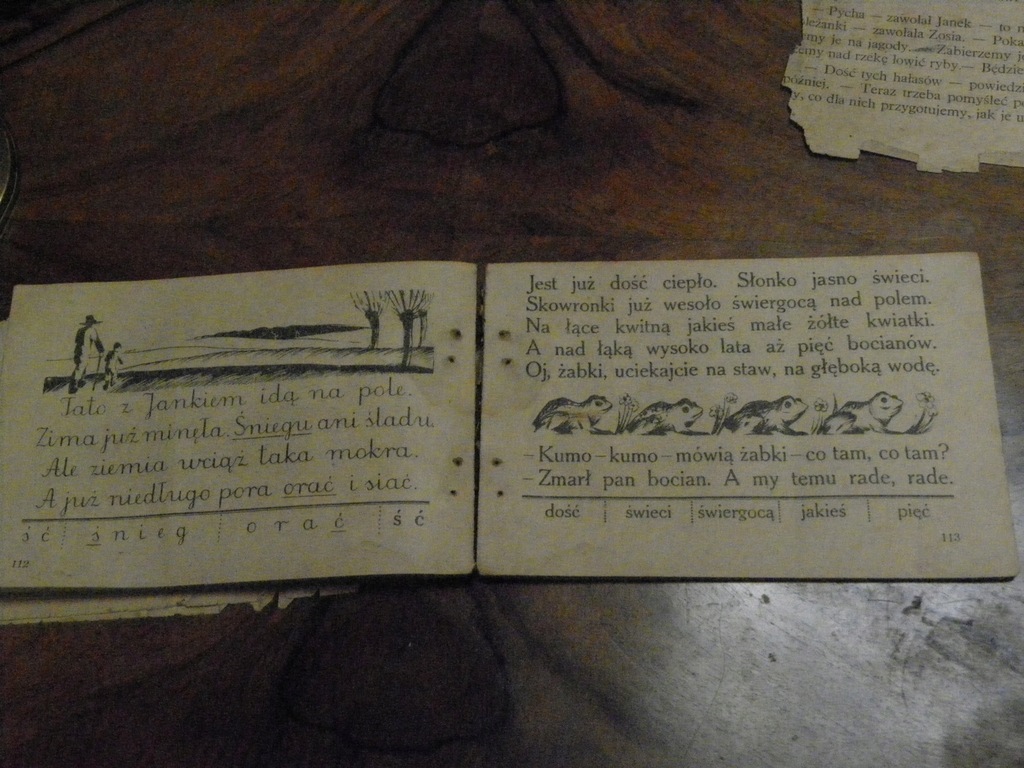 — Pycha — zawołał Janek — to
— zawołała Zosia. —
je na jagody. — Zabierzemy
nad rzekę łowić ryby. — Będzie
— Dość tych hałasów —
później. — Teraz trzeba pomyśleć
co dla nich przygotujemy, jak je
Tato z Jankiem idą na pole.
Zima już minęła. Śniegu ani śladu.
Ale ziemia wciąż taka mokra.
A już niedługo pora orać i siać.
ś ć ś n i e g o r a ć ś ć
112
Jest już dość ciepło. Słonko jasno świeci.
Skowronki już wesoło świergocą nad polem.
Na łące kwitną jakieś małe żółte kwiatki.
A nad łąką wysoko lata aż pięć bocianów.
Oj, żabki, uciekajcie na staw, na głęboką wodę.
– Kumo – kumo – mówią żabki – co tam, co tam?
– Zmarł pan bocian. A my temu rade, rade.
dość świeci świergocą jakieś pięć
113